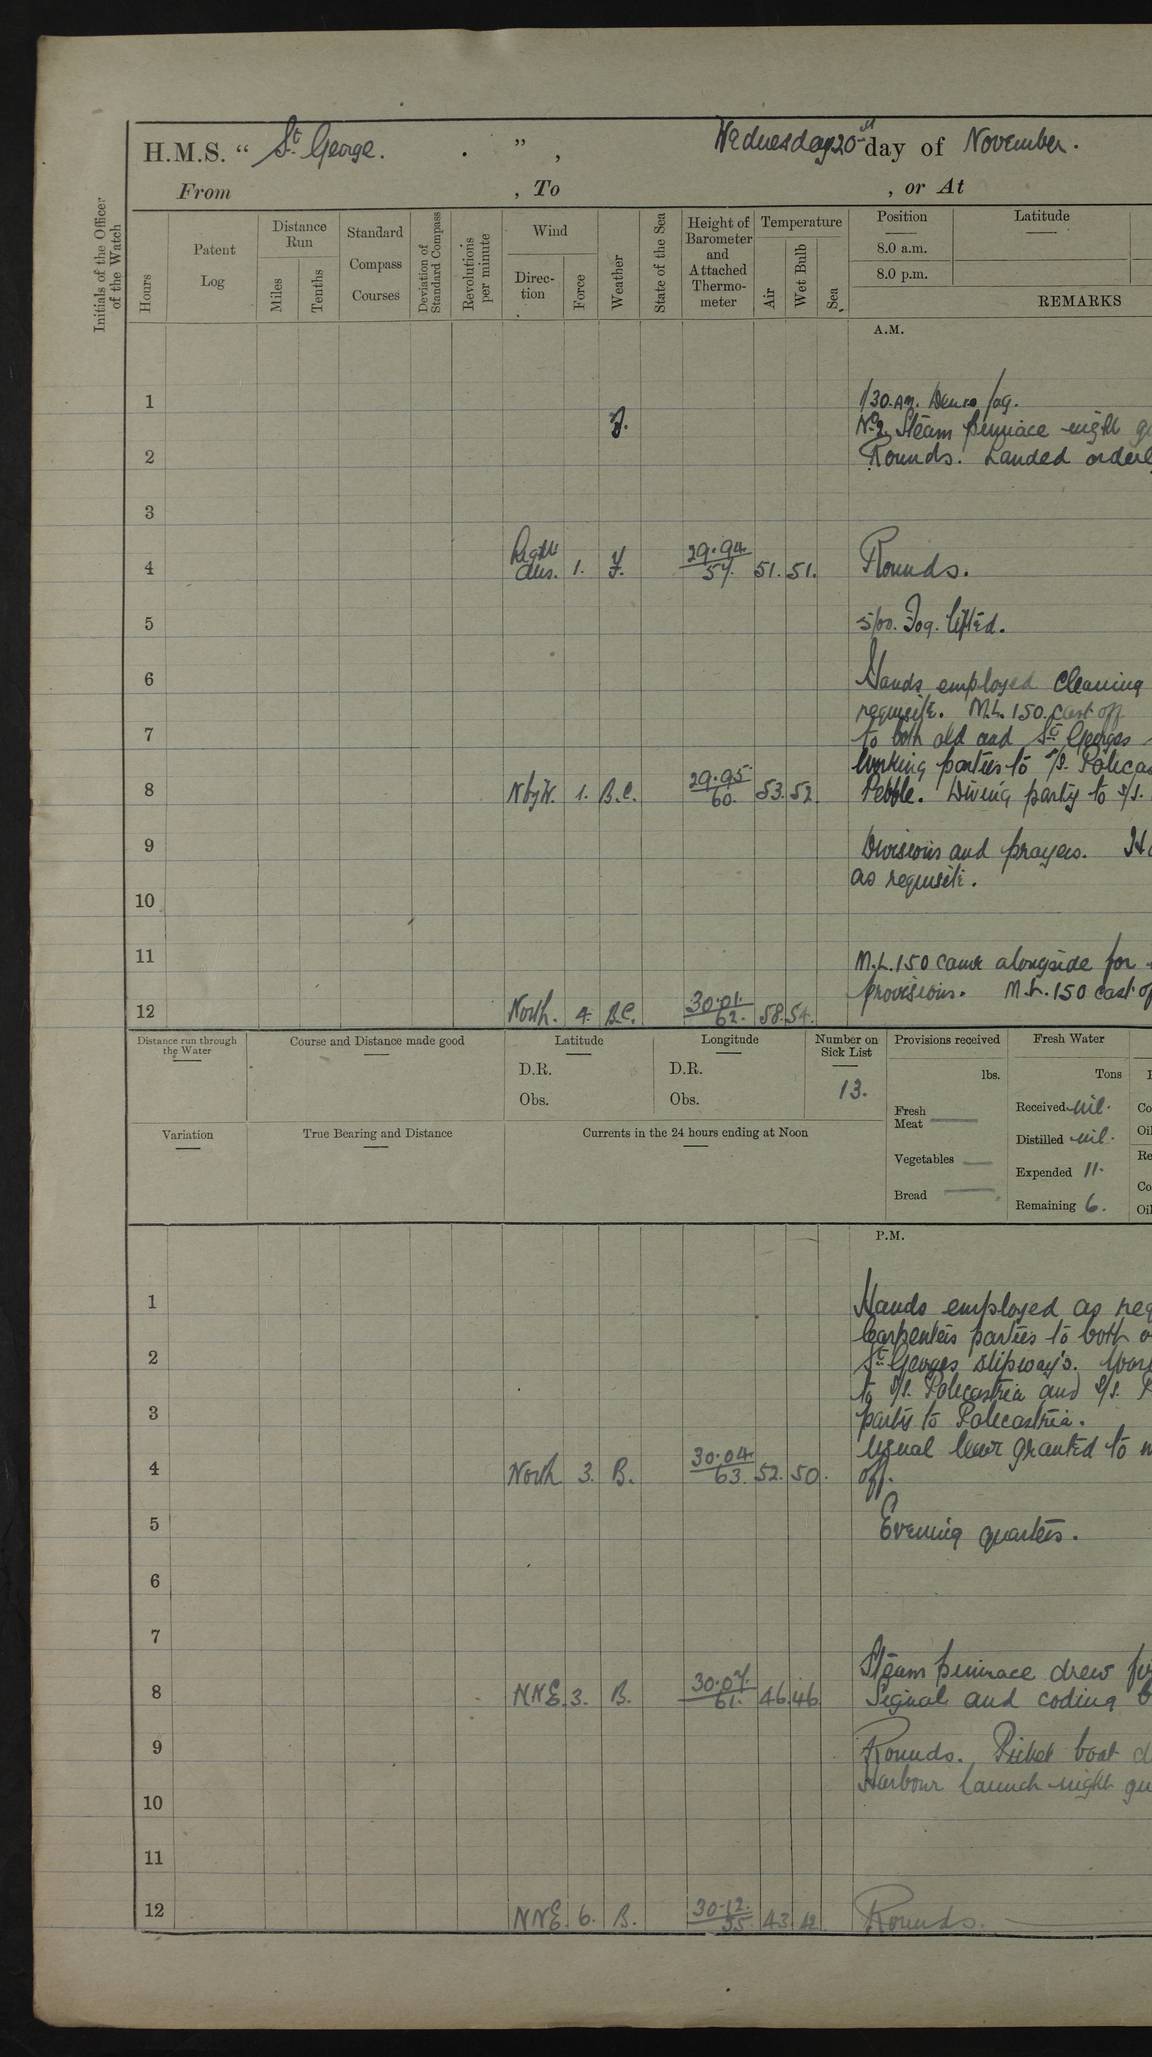 H.M.S. “ St George. ” , Wednesday 20th day of November.
From , To , or At
Initials of the Officer of the Watch
Hours
Patent Log
Distance Run
Miles
Tenths
Standard Compass Courses
Deviation of Standard Compass
Revolutions per minute
Wind
Direc-tion
Force
Weather
State of the Sea
Height of Barometer and Attached Thermo-meter
Temperature
Air
Wet Bulb
Sea
Position
Latitude
8.0 a.m.
8.0 p.m.
REMARKS
A.M.
1 1/30. AM. Dense fog.
F. No 2 Steam pinnace night
2 Rounds. Landed
3
4 Light airs. 1. F. 29.94 57. 51. 51. Rounds.
5 5/00. Fog. lifted.
6 Hands employed cleaning
requisite. M.L. 150. cast off
7 to both old and St Georges
Working parties to S/S. Policas
8 N by W. 1. B.C. 29.95 60. 53. 52. Pebble. Diving party to S/S.
9 Divisions and prayers.
as requisite.
10
11 M.L. 150 came alongside for
provisions. M.L. 150 cast
12 North. 4. B.C. 30.01. 62. 58. 54.
Distance run through the Water
Course and Distance made good
Latitude
D.R.
Obs.
Longitude
D.R.
Obs.
Number on Sick List
13.
Provisions received
lbs.
Fresh Meat
Vegetables
Bread
Fresh Water
Tons
Received nil.
Distilled nil.
Expended 11.
Remaining 6.
Co
Oil
Re
Co
Oil
Variation
True Bearing and Distance
Currents in the 24 hours ending at Noon
P.M.
1 Hands employed as req
Carpenters parties to both
2 St Georges slipway's.
to S/S. Policastria and S/S. P
3 party to Policastria.
Usual leave granted to
4 North 3. B. 30.04. 63. 52. 50. off.
5 Evening quarters.
6
7
Steam pinnace drew
8 NNE. 3. B. 30.07. 61. 46. 46. Signal and coding
9 Rounds. Picket boat
Harbour launch night gu
10
11
12 NNE. 6. B. 30.12. 55. 43. 42. Rounds.